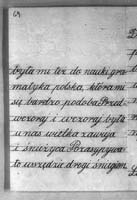 była mi też do nauki gra
matyka polska, która mi
się bardzo podoba Przed
wczoraj i wczoraj była
u nas wielka zawieja
i śnieżyca Pozasypywa
ło wszędzie drogi śniegiem